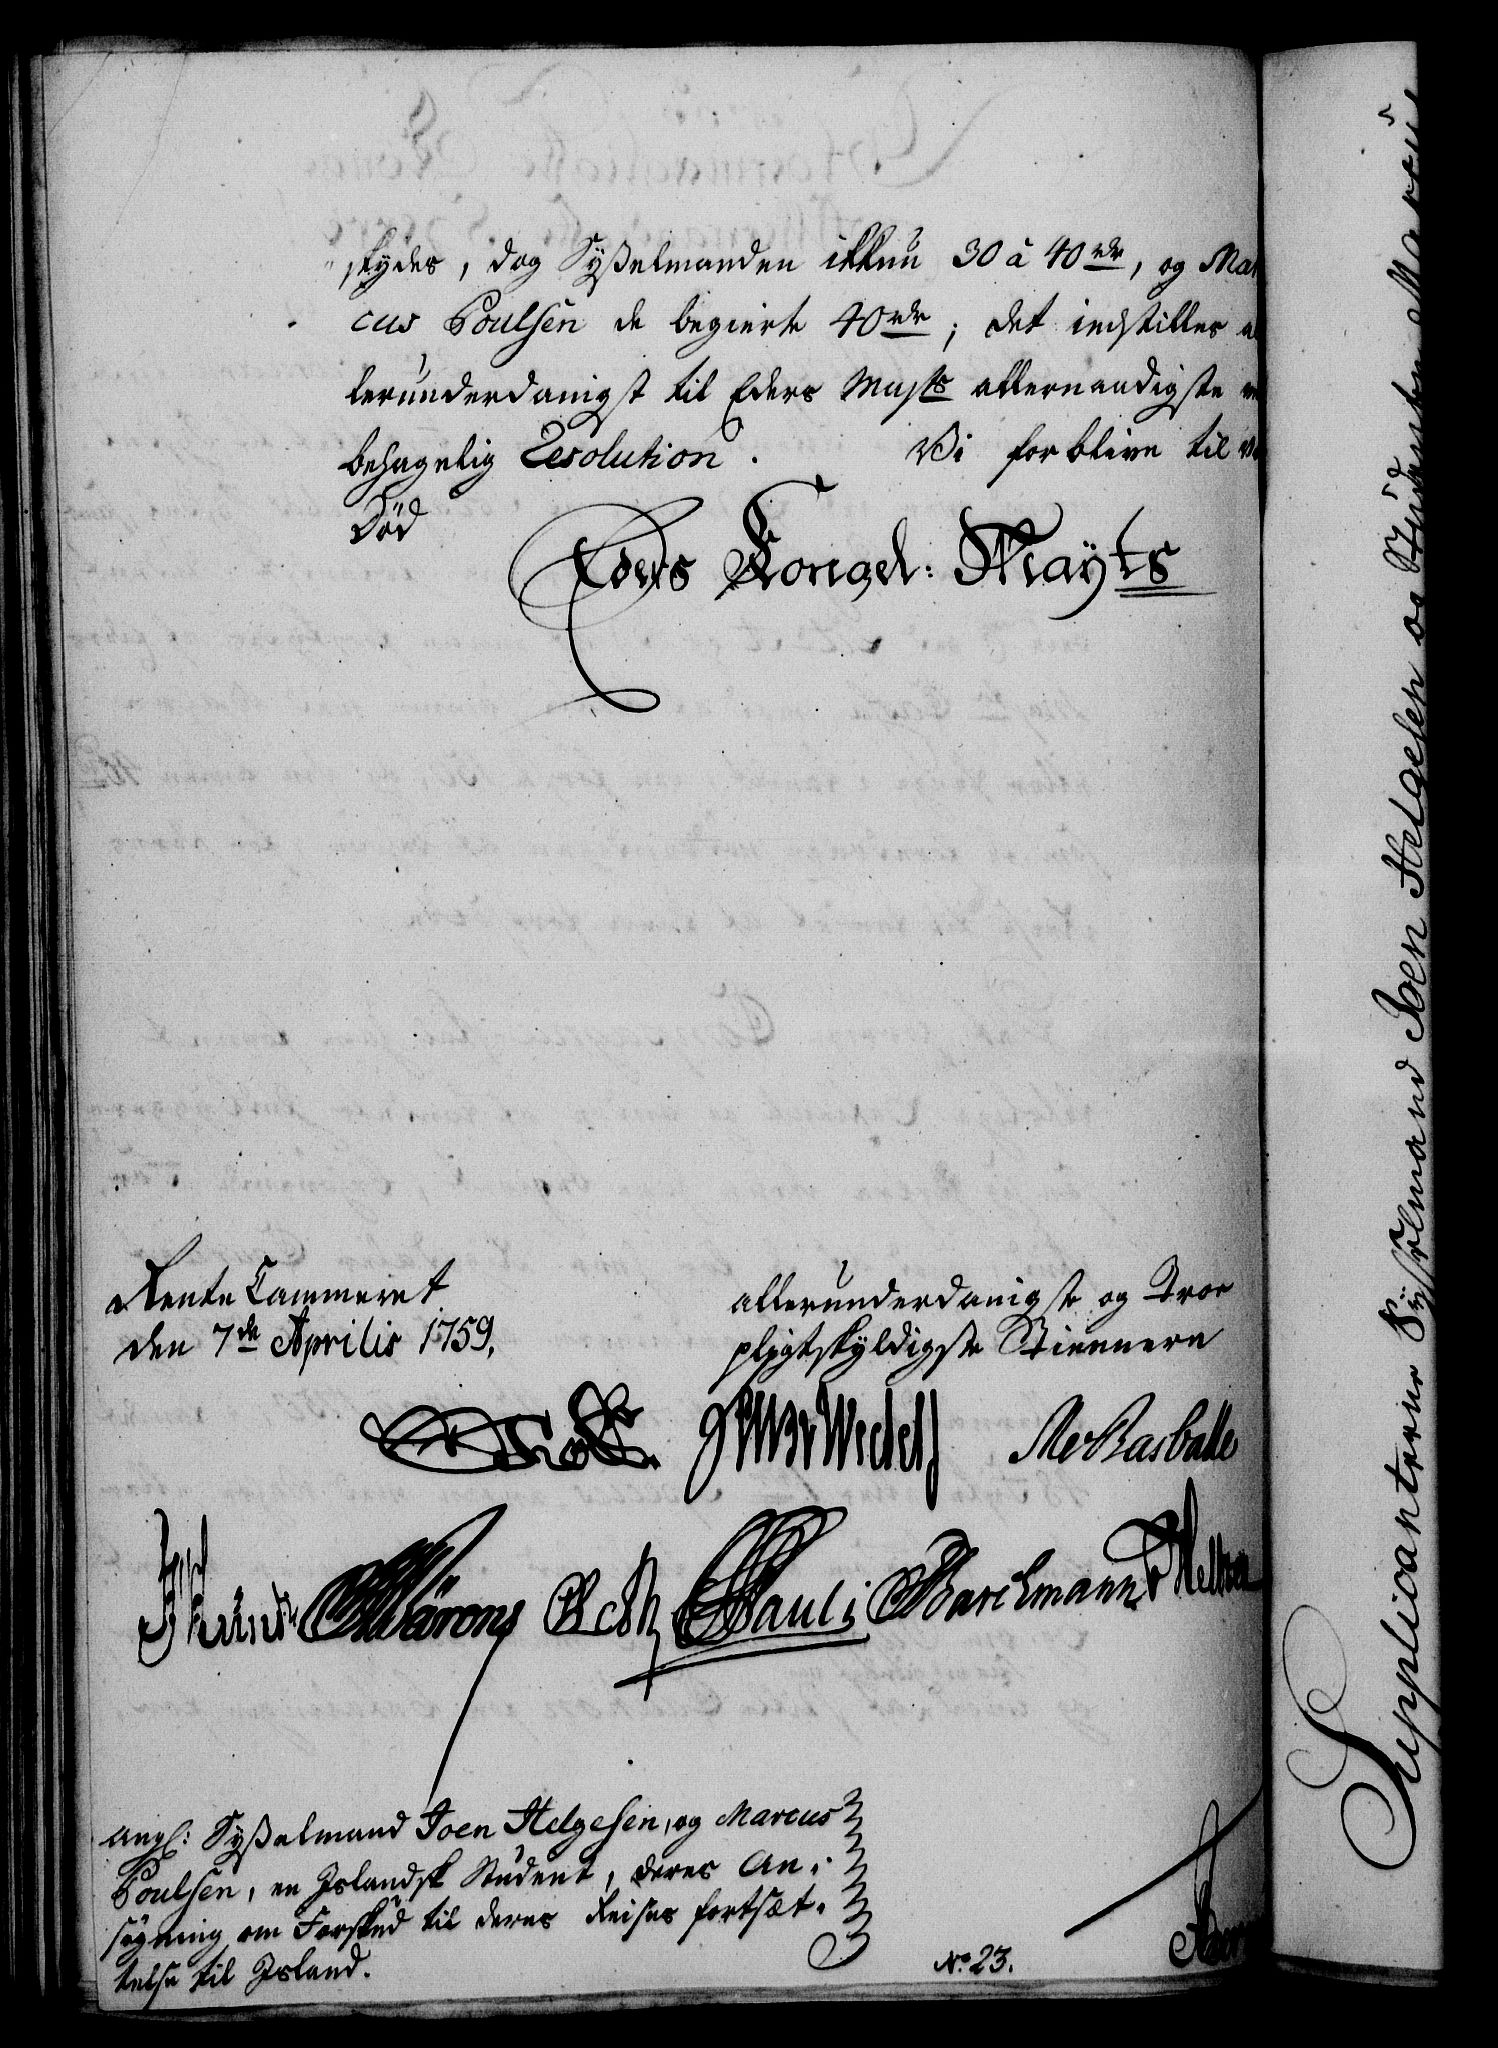 skydes, dog Sysselmanden ikkun 30 à 40 rdr, og Mar
cus Poulsen de begierte 40 rdr; det indstilles al
lerunderdanigst til Eders Majts allernaadigste
behagelig Resolution. Vi forblive til
Død
Eders Kongel: Mayts
Rente Cammeret
den 7de Aprilis 1759.
allerunderdanigste og Troe
pligtskyldigste Tiennere
Wedel
Rasballe
Pauli Barchmann
angl: Sysselmand Joen Helgesen, og Marcus
Poulsen, en Islandsk Student, deres An-
søgning om Forskud til deres Reises fortsæt-
telse til Island.
No 23.
Supplicanterne Sysselmand Joen Helgesen og Studenten Marcus